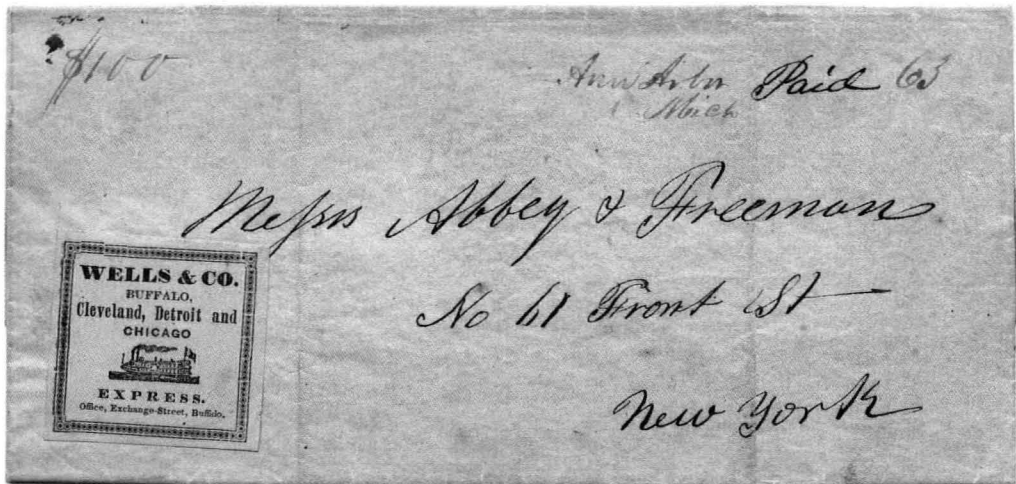 $100
Ann Arbor Paid 63
Mich
Messrs Abbey & Freeman
No 61 Front St
New York
WELLS & CO.
BUFFALO,
Cleveland, Detroit and
CHICAGO
EXPRESS.
Office, Exchange-Street, Buffalo.